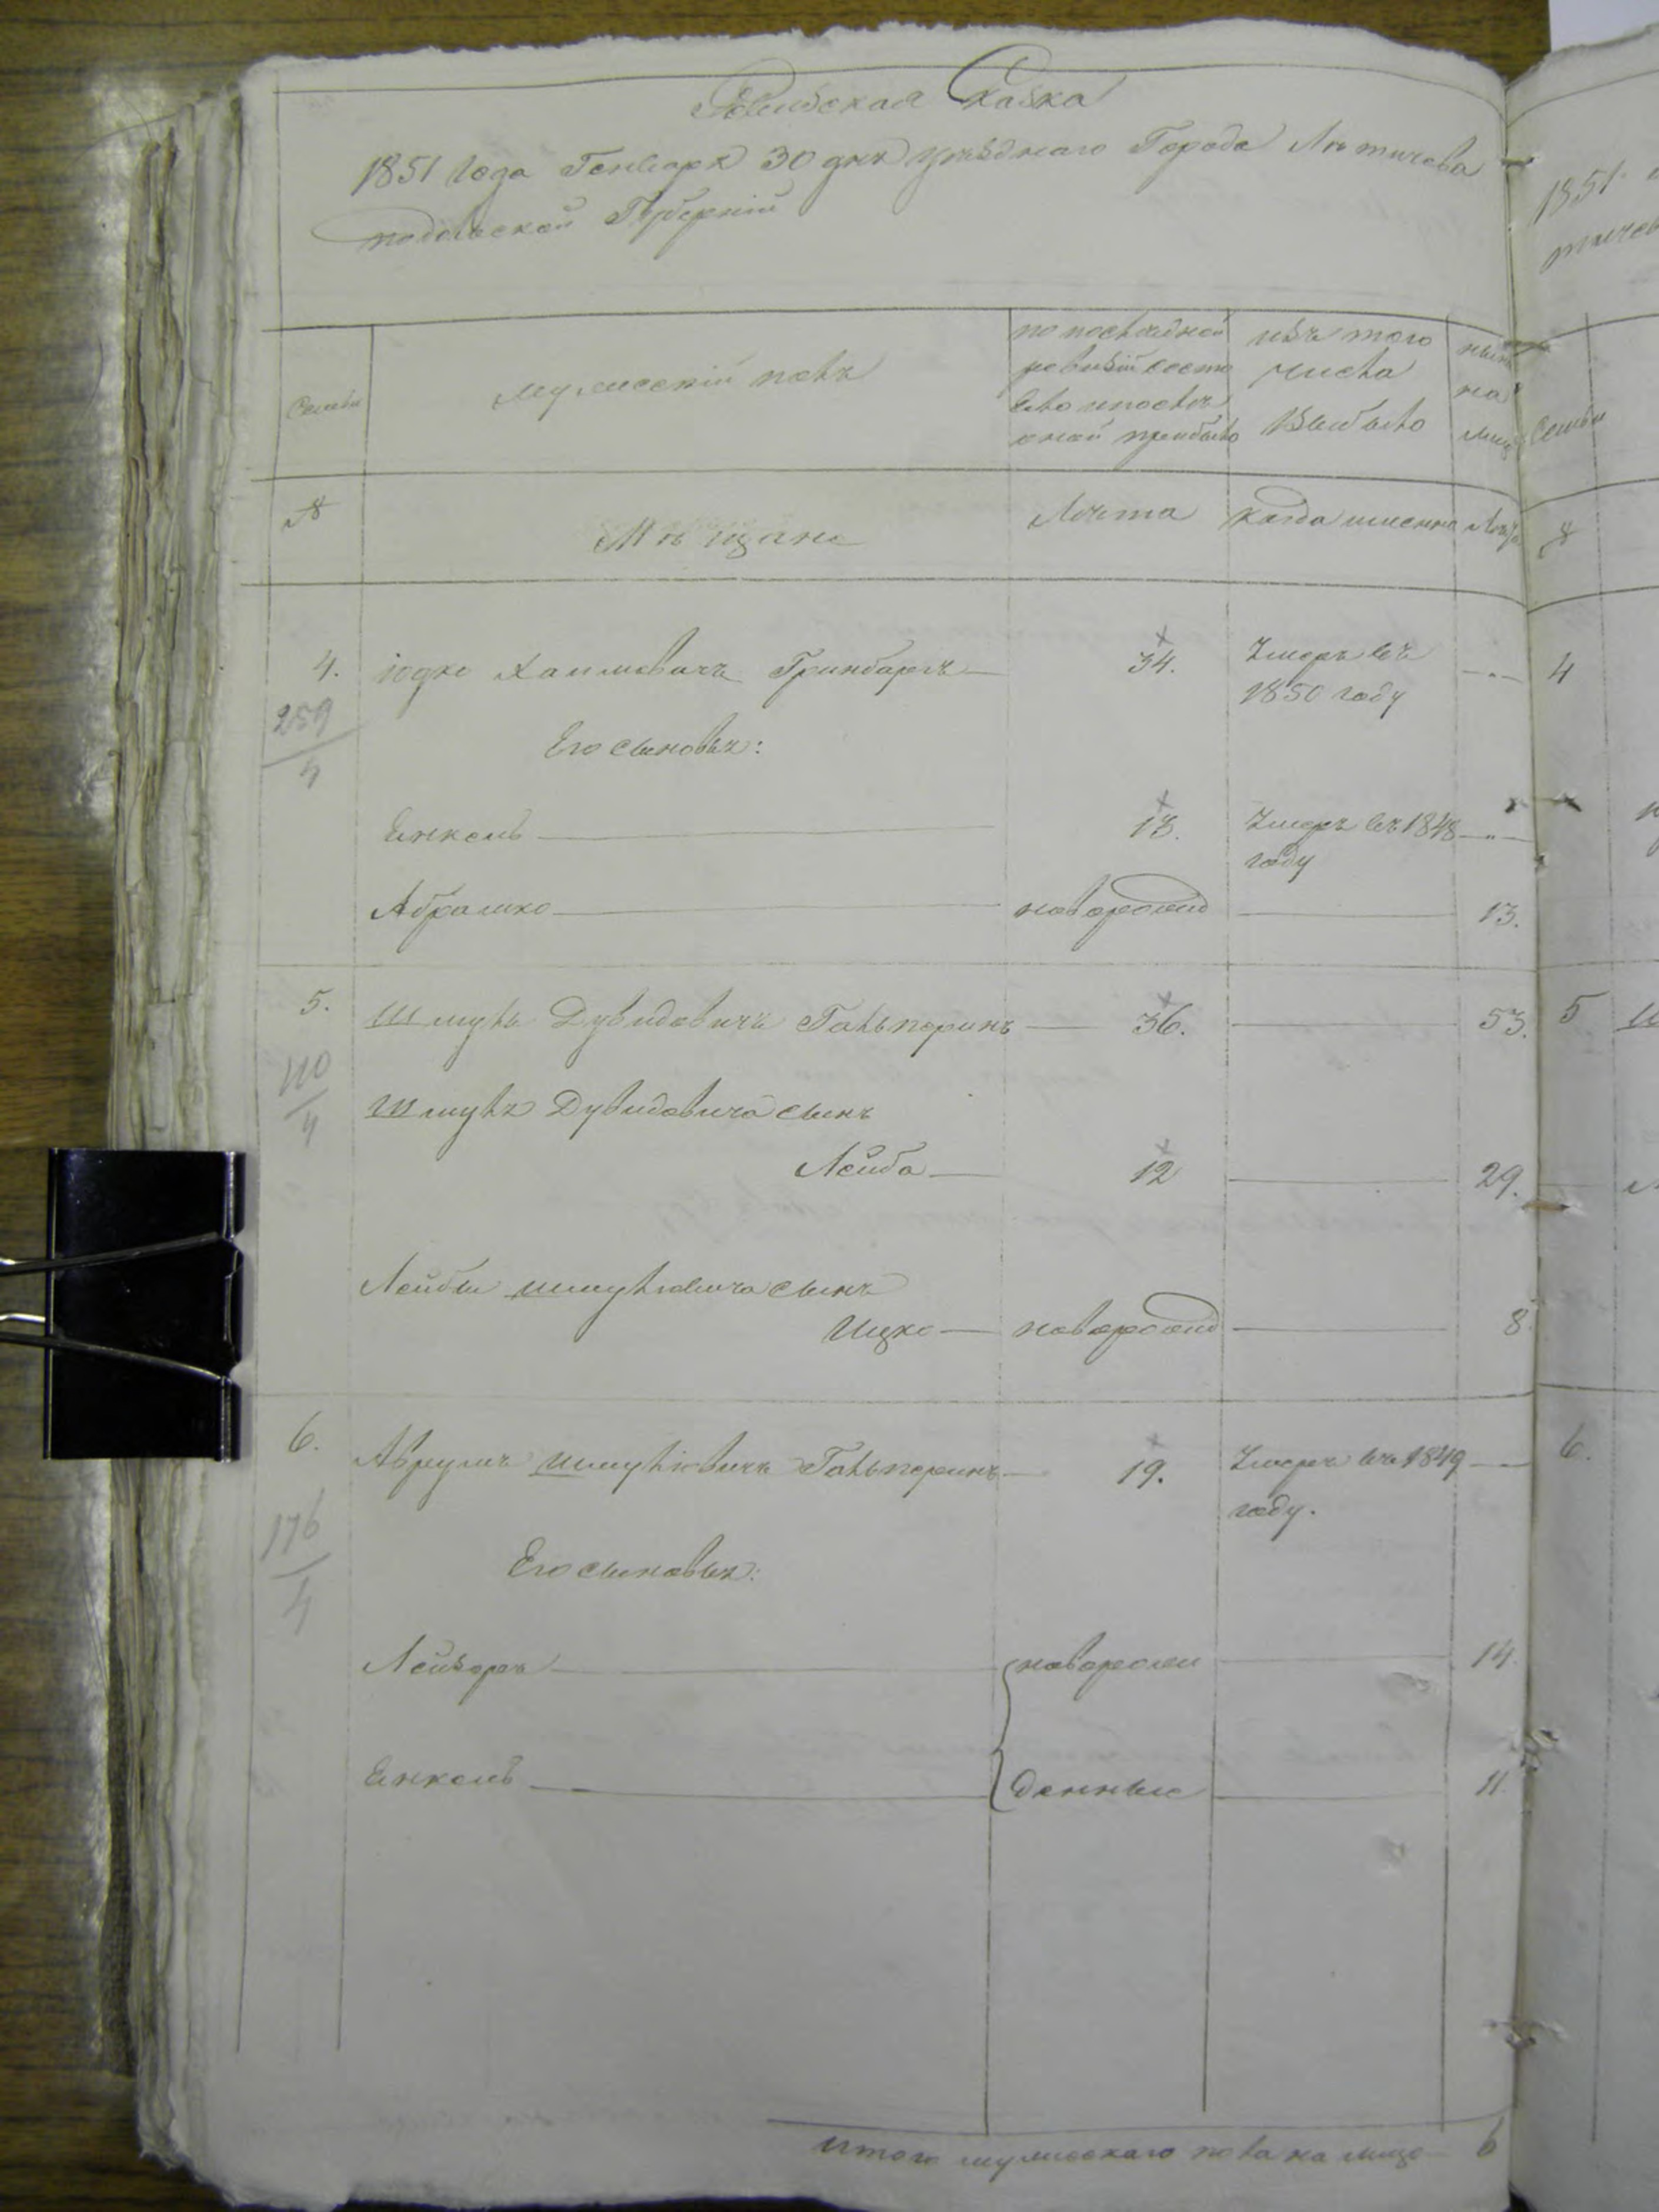 Ревизская Сказка
1851 года Генваря 30 дня уѣзднаго Города Лѣтичева
подольской Губерніи
Семьи
мужескій полъ
по послѣдней
ревизіи состо
яло и послѣ
оной прибыло
изъ того
числа
Выбыло
нынѣ
на
лицо
№
Мѣщане
Лѣта
когда именно
Лѣта
4. Іодко Хаимовичъ Гринбергъ 34. Умеръ въ
1850 году
259
4
Его сыновья:
Янкель 13. Умеръ въ 1848
году
Абрамко новорожд 13.
5. Шмуль Дувидовичъ Гальперинъ 36. 53.
110
4
Шмуля Дувидовича сынъ
Лейба 12 29.
Лейбы Шмулiовича сынъ
Ицко новорожд 8
6. Аврумъ Шмуліовичъ Гальперинъ 19. Умеръ въ 1849
году.
176
4
Его сыновья:
Лейзоръ новорож 14.
Янкель денные 11
Итого мужескаго пола на лицо 6
1851
тичев
Семьи
№
4
5
6.